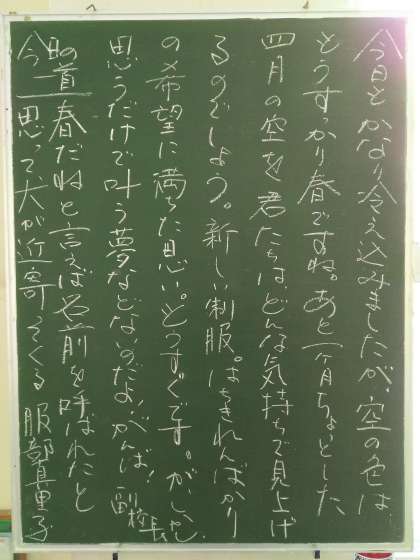 今日もかなり冷え込みましたが、空の色は
もうすっかり春ですね。あと一ヶ月ちょいとした
四月の空を君たちは、どんな気持ちで見上げ
るのでしょう。新しい制服。はちきれんばかり
の希望に満ちた思い。もうすぐです。がしかし、
思うだけで叶う夢などないのだよ！がんば！ 副校長
春だねと言えば名前を呼ばれたと
思って犬が近寄ってくる 服部真里子